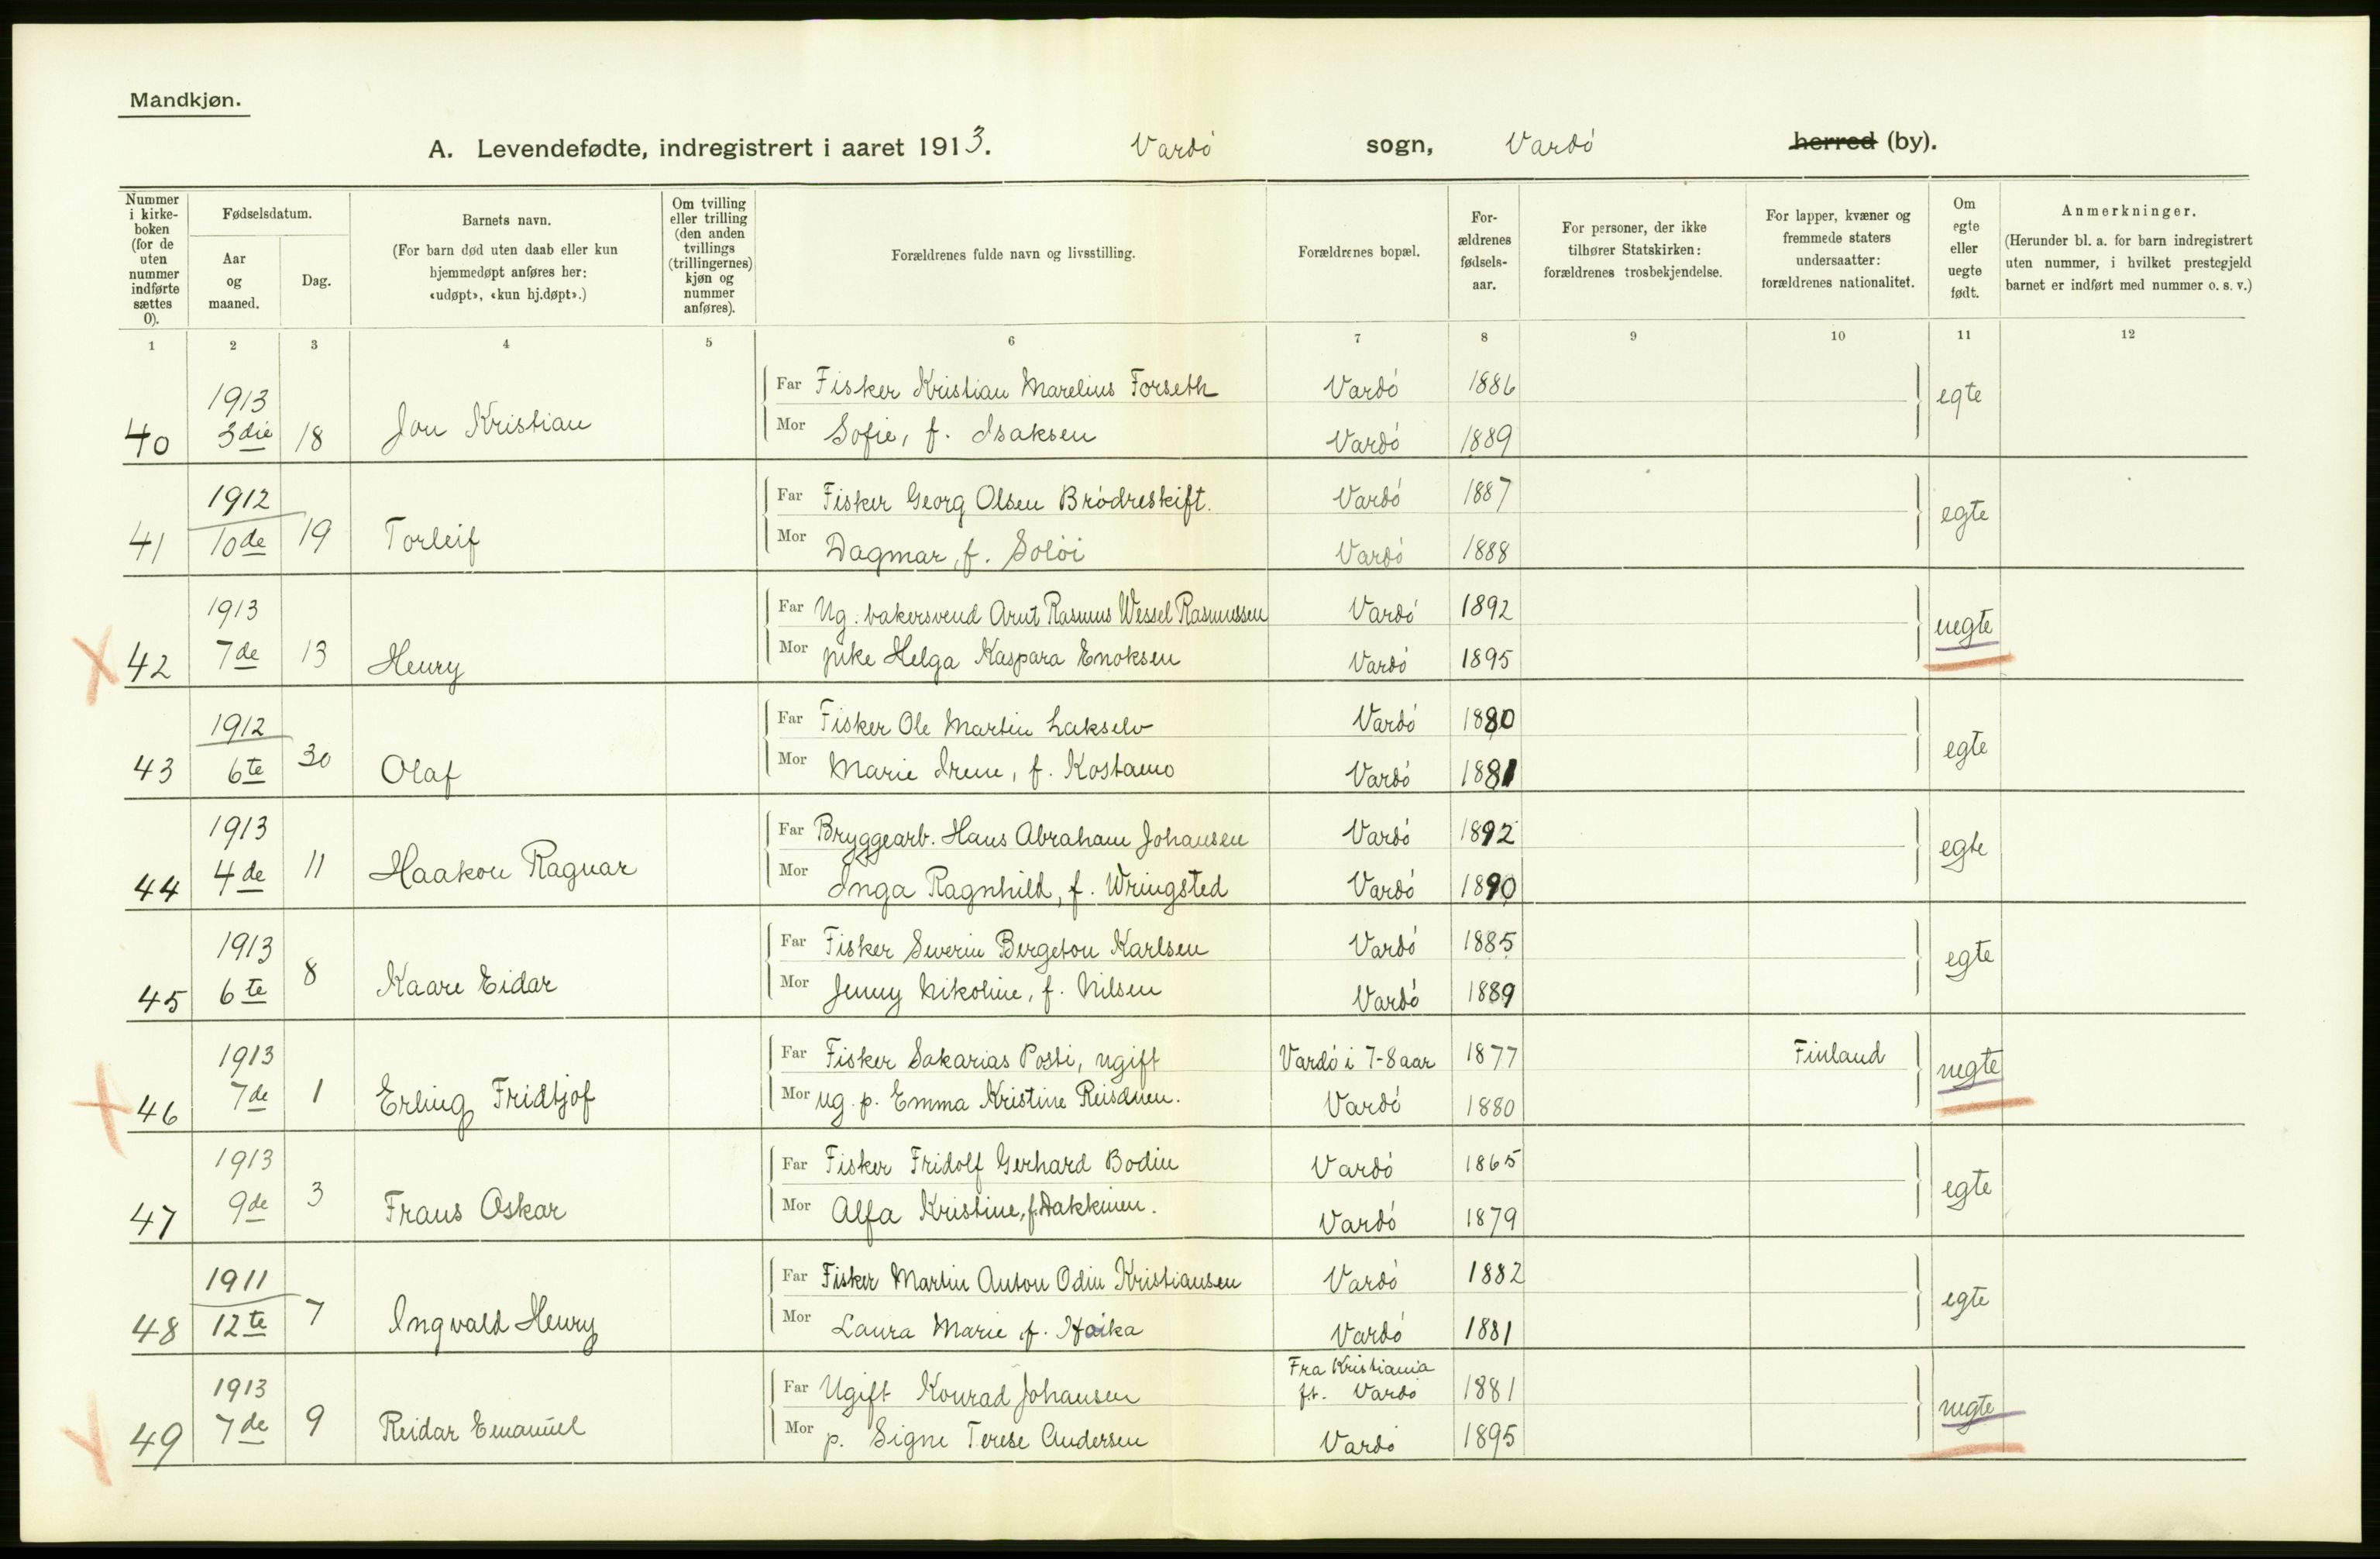 Mandkjøn.
A. Levendefødte, indregistrert i aaret 1913. Vardö sogn, Vardö herred (by).
Nummer i kirke-boken (for de uten nummer indførte sættes 0).
Fødselsdatum.
Aar og maaned.
Dag.
Barnets navn.
(For barn død uten daab eller kun hjemmedøpt anføres her: «udøpt», «kun hj.døpt».)
Om tvilling eller trilling (den anden tvillings (trillingernes) kjøn og nummer anføres).
Forældrenes fulde navn og livsstilling.
Forældrenes bopæl.
For-ældrenes fødsels-aar.
For personer, der ikke tilhører Statskirken: forældrenes trosbekjendelse.
For lapper, kvæner og fremmede staters undersaatter: forældrenes nationalitet.
Om egte eller uegte født.
Anmerkninger.
(Herunder bl. a. for barn indregistrert uten nummer, i hvilket prestegjeld barnet er indført med nummer o. s. v.)
1 2 3 4 5 6 7 8 9 10 11 12
1913 Far Fisker Kristian Marelius Forseth Vardö 1886 egte
40 3die 18 Jon Kristian Mor Sofie, f. Isaksen Vardö 1889
1912 Far Fisker Georg Olsen Brödreskift. Vardö 1887 egte
41 10de 19 Torleif Mor Dagmar, f. Solöi Vardö 1888
1913 Far Ug. bakersvend Arnt Rasmus Wessel Rasmussen Vardö 1892 uegte
42 7de 13 Henry Mor pike Helga Kaspara Enoksen Vardö 1895
1912 Far Fisker Ole Martin Lakselv Vardö 1880 egte
43 6te 30 Olaf Mor Marie Irene, f. Kostamo Vardö 1881
1913 Far Bryggearb. Hans Abraham Johansen Vardö 1892 egte
44 4de 11 Haakon Ragnar Mor Inga Ragnhild, f. Wringsted Vardö 1890
1913 Far Fisker Severin Bergeton Karlsen Vardö 1885 egte
45 6te 8 Kaare Eidar Mor Jenny Nikoline, f. Nilsen Vardö 1889
1913 Far Fisker Sakarias Posti, ugift Vardö i 7-8 aar 1877 Finland uegte
46 7de 1 Erling Fridtjof Mor ug. p. Emma Kristine Vardö 1880
1913 Far Fisker Fridolf Gerhard Bodin Vardö 1865 egte
47 9de 3 Frans Oskar Mor Alfa Kristine, f. Vardö 1879
1911 Far Fisker Martin Anton Odin Kristiansen Vardö 1882 egte
48 12te 7 Ingvald Henry Mor Laura Marie, f. Vardö 1881
Fra Kristiania
1913 Far Ugift Konrad Johansen ft. Vardö 1881 uegte
49 7de 9 Reidar Emanuel Mor p. Signe Terese Andersen Vardö 1895